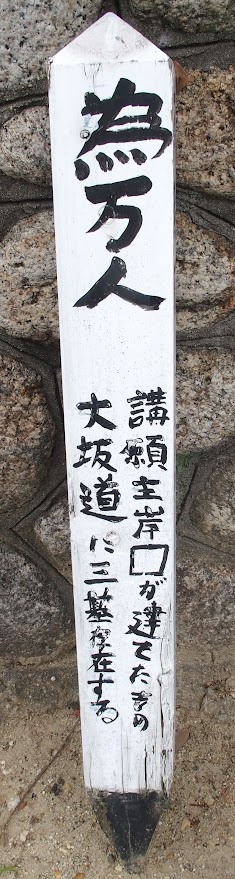 為万人
講願主岸□が建てたもの
大坂道に三基存在する